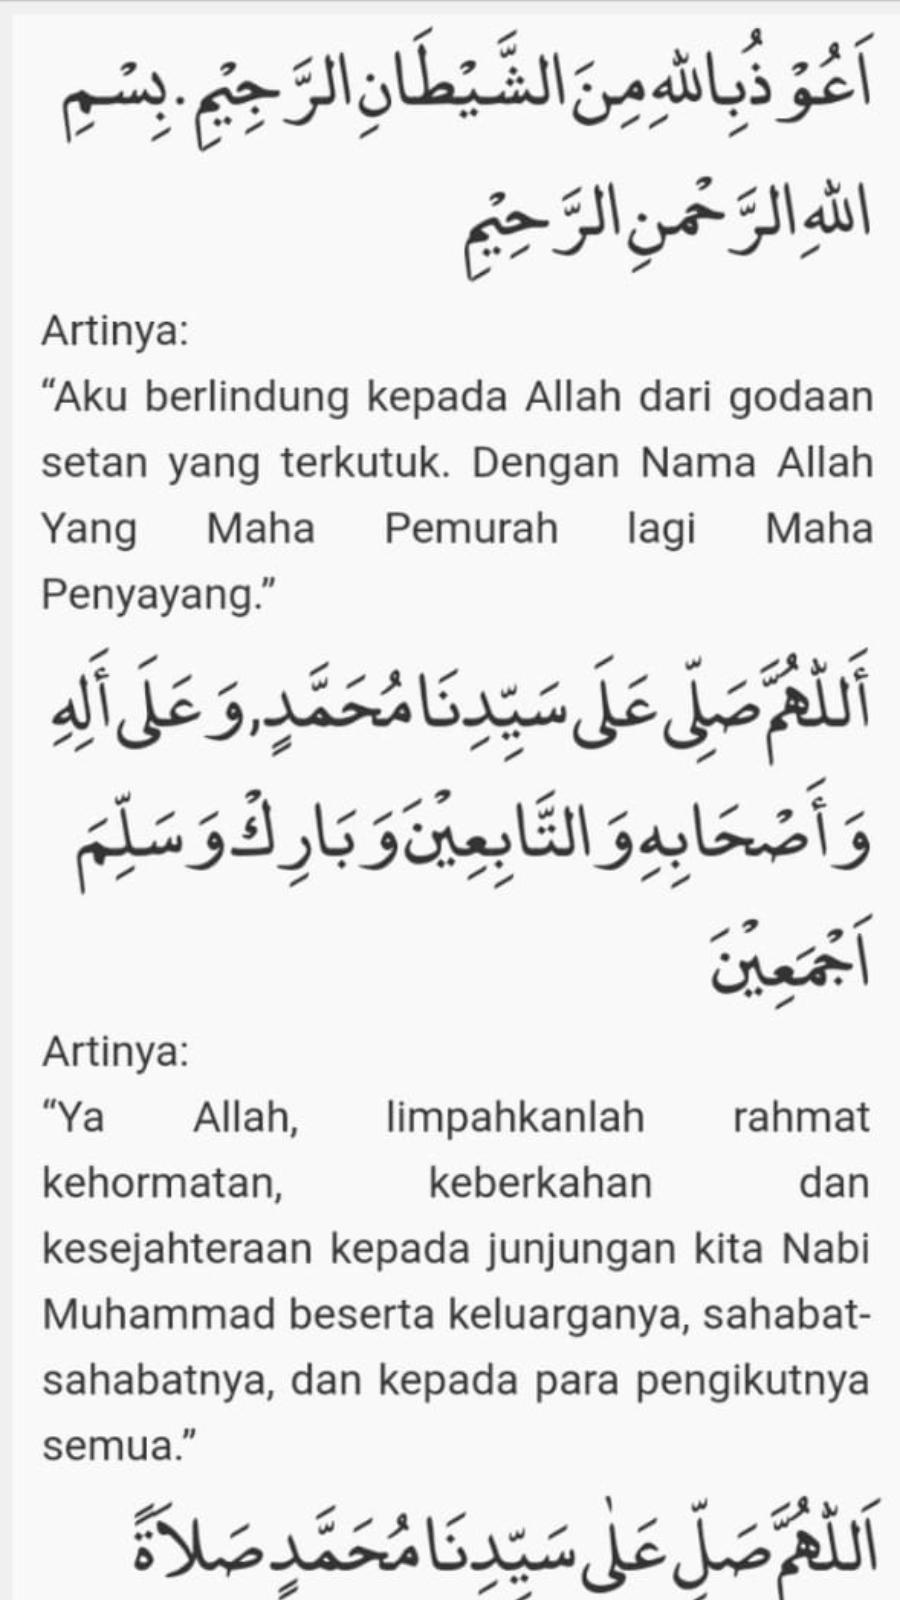 اَعُوْذُبِاللهِ مِنَ الشَّيْطَانِ الرَّجِيْمِ. بِسْمِ
اللهِ الرَّحْمنِ الرَّحِيْمِ
Artinya:
“Aku berlindung kepada Allah dari godaan
setan yang terkutuk. Dengan Nama Allah
Yang Maha Pemurah lagi Maha
Penyayang.”
أَللّٰهُمَّ صَلِّى عَلَى سَيِّدِنَا مُحَمَّدٍ, وَ عَلَى أَلِهِ
وَ أَصْحَابِهِ وَ التَّابِعِيْنَ وَ بَارِكْ وَ سَلِّمَ
اَجْمَعِيْنَ
Artinya:
“Ya Allah, limpahkanlah rahmat
kehormatan, keberkahan dan
kesejahteraan kepada junjungan kita Nabi
Muhammad beserta keluarganya, sahabat-
sahabatnya, dan kepada para pengikutnya
semua.”
اَللّٰهُمَّ صَلِّ عَلٰى سَيِّدِنَا مُحَمَّدٍ صَلاَةً